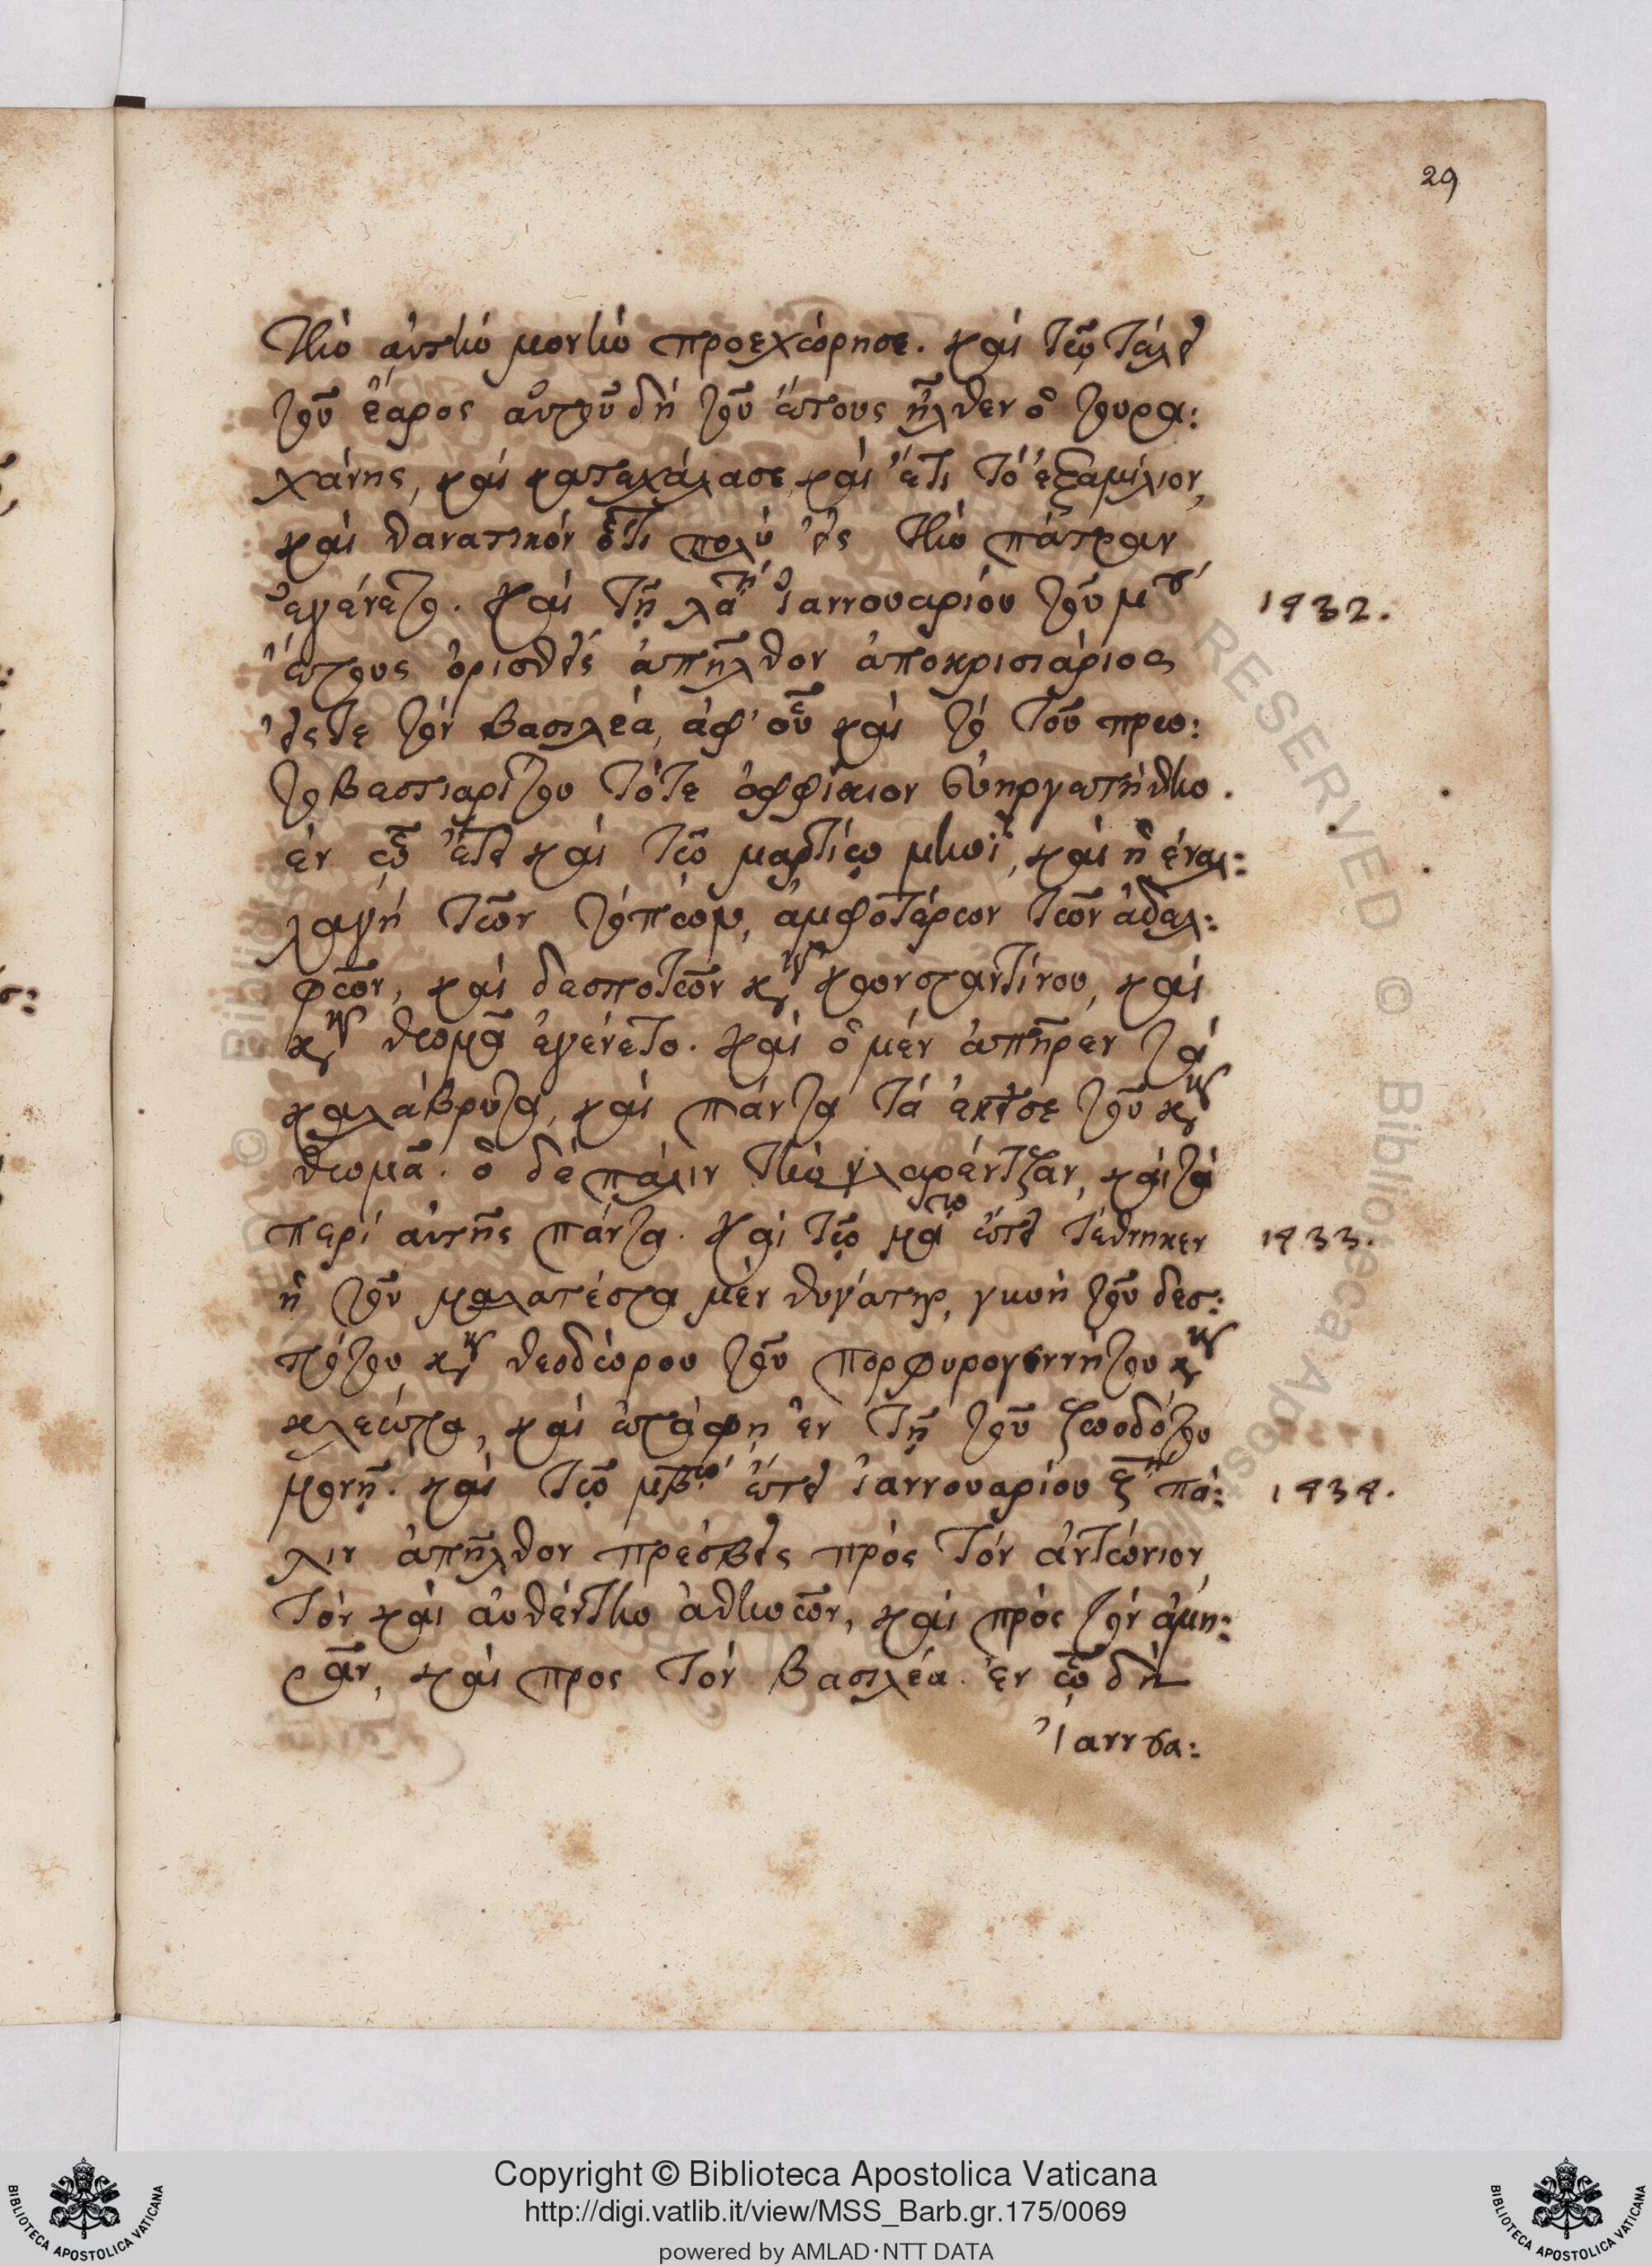 29
τὴν αὐτὴν μονὴν προεχώρησε. καὶ τῷ τέλει
τοῦ ἔαρος αὐτοῦ δὴ τοῦ ἔτους ἦλθεν ὁ τουρα:
χάνης, καὶ κατεχάλασε καὶ ἔτι τὸ ἑξαμίλιον,
καὶ θανατικὸν ἔτι πολὺ εἰς τὴν πάτραν
ἐγένετο. καὶ τῇ λα^τῇ ἰαννουαρίου τοῦ μ^οῦ 1432.
ἔτους ὁρισθεὶς ἀπῆλθον ἀποκρισιάριος
εἴς τε τὸν βασιλέα, ἀφ' οὗ καὶ τὸ τοῦ πρω:
τοβεστιαρίτου τότε ὀφφίκιον εὐηργετήθην.
ἐν ᾧ ἔτει καὶ τῷ μαρτίῳ μηνὶ, καὶ ἡ ἐναλ:
λαγὴ τῶν τόπων, ἀμφοτέρων τῶν ἀδελ:
φῶν, καὶ δεσποτῶν κυροῦ κωνσταντίνου, καὶ
κυροῦ θωμᾶ ἐγένετο. καὶ ὁ μὲν ἀπῆρεν τὰ
καλάβρυτα, καὶ πάντα τὰ ἐκεῖσε τοῦ κυροῦ
θωμᾶ. ὁ δὲ πάλιν τὴν γλαρέντζαν, καὶ τὰ
περὶ αὐτῆς πάντα. καὶ τῷ μα^τω ἔτει τέθνηκεν 1433.
ἡ τοῦ μαλατέστα μὲν θυγάτηρ, γυνὴ τοῦ δεσ:
πότου κυροῦ θεοδώρου τοῦ πορφυρογεννήτου κυρὰ
κλεώπα, καὶ ἐτάφη ἐν τῇ τοῦ ζωοδότου
μονῇ. καὶ τῷ μβ^ῳ ἔτει ἰαννουαρίου ξ^η πά: 1434.
λιν ἀπῆλθον πρέσβεις πρὸς τὸν ἀντώνιον,
τὸν καὶ αὐθέντην ἀθηνῶν, καὶ πρὸς τὸν ἀμη:
ρᾶν, καὶ προς τὸν βασιλέα. ἐν ᾧ δὴ
Ἰαννουα:
Copyright © Biblioteca Apostolica Vaticana
http://digi.vatlib.it/view/MSS_Barb.gr.175/0069
powered by AMLAD·NTT DATA
BIBLIOTECA APOSTOLICA VATICANA
BIBLIOTECA APOSTOLICA VATICANA